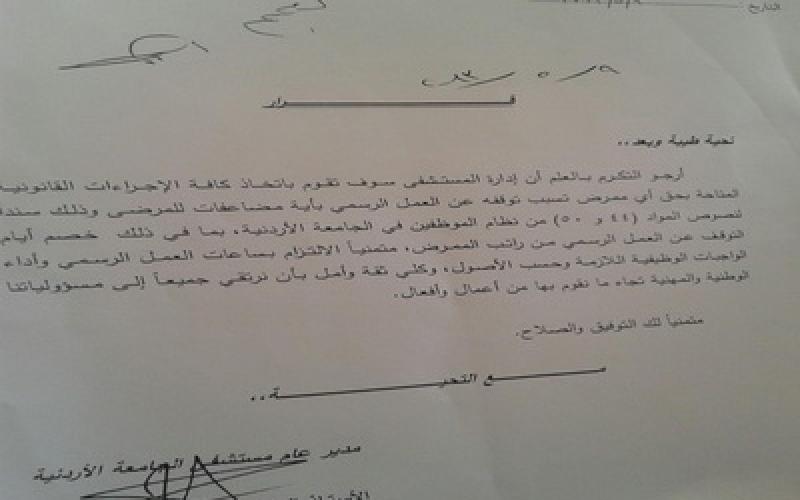 التاريخ:
تعميم
قـــــــــرار
تحية طيبة وبعد..
أرجو التكرم بالعلم أن إدارة المستشفى سوف تقوم باتخاذ كافة الإجراءات القانونية
المتاحة بحق أي ممرض تسبب توقفه عن العمل الرسمي بأية مضاعفات للمرضى وذلك سندا
لنصوص المواد (٤٤ و ٥٠) من نظام الموظفين في الجامعة الأردنية، بما في ذلك خصم أيام
التوقف عن العمل الرسمي من راتب الممرض، متمنياً الالتزام بساعات العمل الرسمي وأداء
الواجبات الوظيفية اللازمة وحسب الأصول، وكلي ثقة وأمل بأن نرتقي جميعاً إلى مسؤولياتنا
الوطنية والمهنية تجاه ما نقوم بها من أعمال وأفعال.
متمنياً لك التوفيق والصلاح.
مـــــع التحيـــــــة..
مدير عام مستشفى الجامعة الأردنية